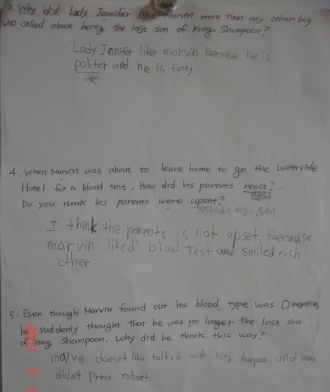 3. Why did Lady Jennifer like Marvin more than any other boy
who called about being the lost son of King Shampoon?
Lady Jinnifer like marvin because he is
politer and he is funny
4. When Marvin was about to leave home to go the Waterside
Hotel for a blood test, How did his parents react?
Do you think his parents were upset?
I think the parents is not upset because
marvin liked blood test and smiled each
other
5. Even though Marvin found out his blood type was O negative,
he suddenly thought that he was no longer the lost son
of King Shampoon, why did he think this way?
marvin doesn't like talked with king shampoon, and
didn't Prince robert